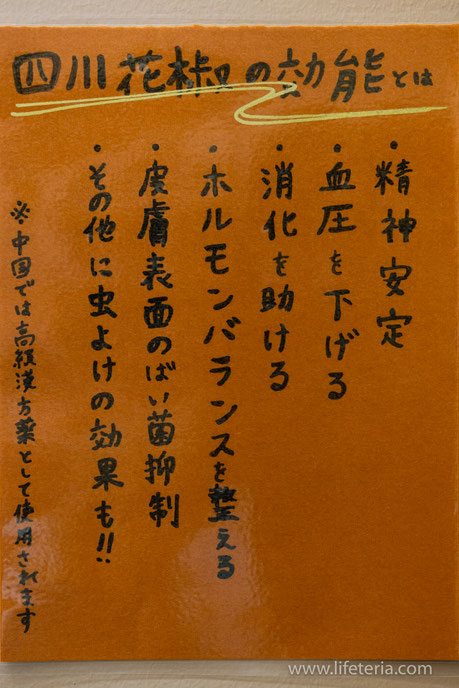 四川花椒の効能とは
・精神安定
・血圧を下げる
・消化を助ける
・ホルモンバランスを整える
・皮膚表面のばい菌抑制
・その他に虫よけの効果も!!
※中国では高級漢方薬として使用されます
www.lifeteria.com